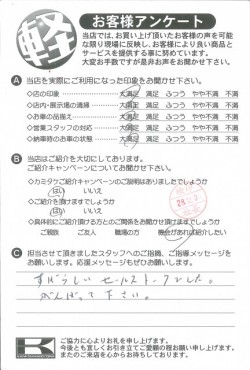 軽
お客様アンケート
当店では、お買い上げ頂いたお客様の声を可能
な限り現場に反映し、お客様により良い商品と
サービスを提供する事に努めています。
大変お手数ですが是非お声をお聞かせ下さい。
A 当店を実際にご利用になった印象をお聞かせ下さい。
◇店の印象 大満足 満足 ふつう やや不満 不満
◇店内・展示場の清掃 大満足 満足 ふつう やや不満 不満
◇お車の品揃え 大満足 満足 ふつう やや不満 不満
◇営業スタッフの対応 大満足 満足 ふつう やや不満 不満
◇納車時のお車の状態 大満足 満足 ふつう やや不満 不満
B 当店はご紹介を大切にしております。
ご紹介キャンペーンについてお聞かせ下さい。
◇カミタケご紹介キャンペーンのご説明はありましたでしょうか
はい いいえ
◇ご紹介を頂けますでしょうか
はい いいえ
◇具体的にご紹介頂ける方とのご関係をお聞かせ頂けますでしょうか
ご親族 ご友人 職場の方 機会があれば紹介したい
C 担当させて頂きましたスタッフへのご指摘、ご指導メッセージを
お願いします。応援メッセージもぜひお願いします。
すばらしいセールストークでした。
がんばって下さい。
K
ご協力に心よりお礼を申し上げます。
今後とも宜しくお引き立てご愛顧の程お願い申し上げます。
またのご来店を心からお待ちしております。